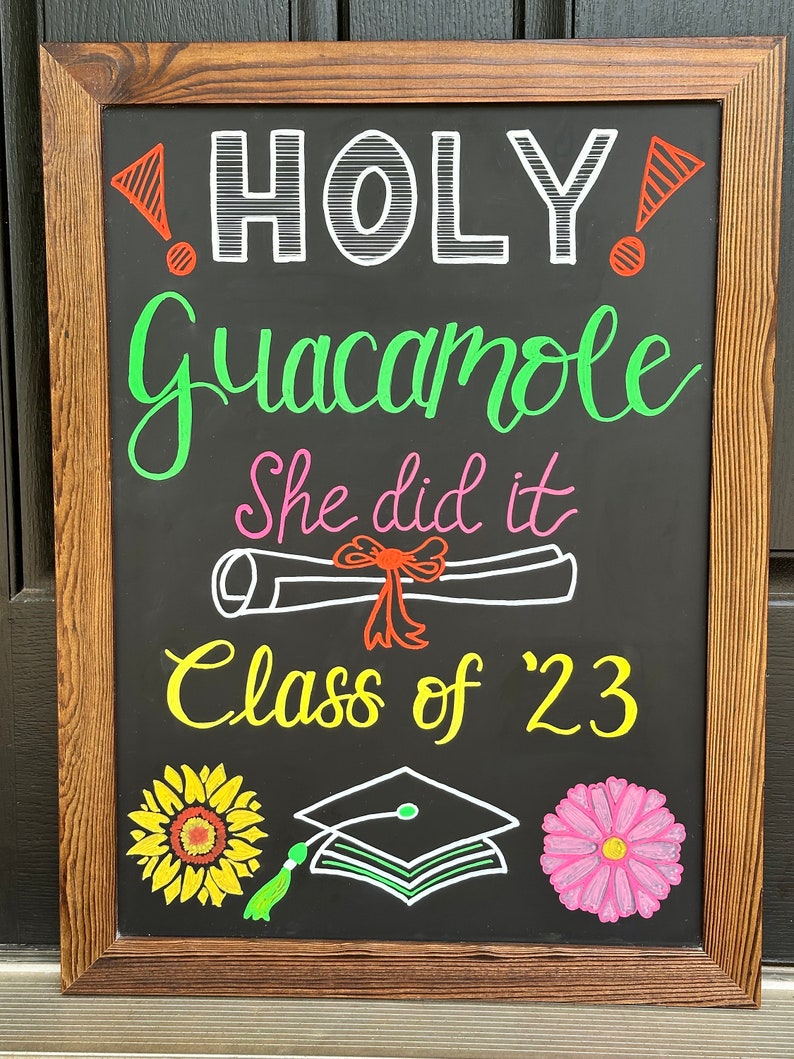 ! HOLY !
Guacamole
She did it
Class of '23